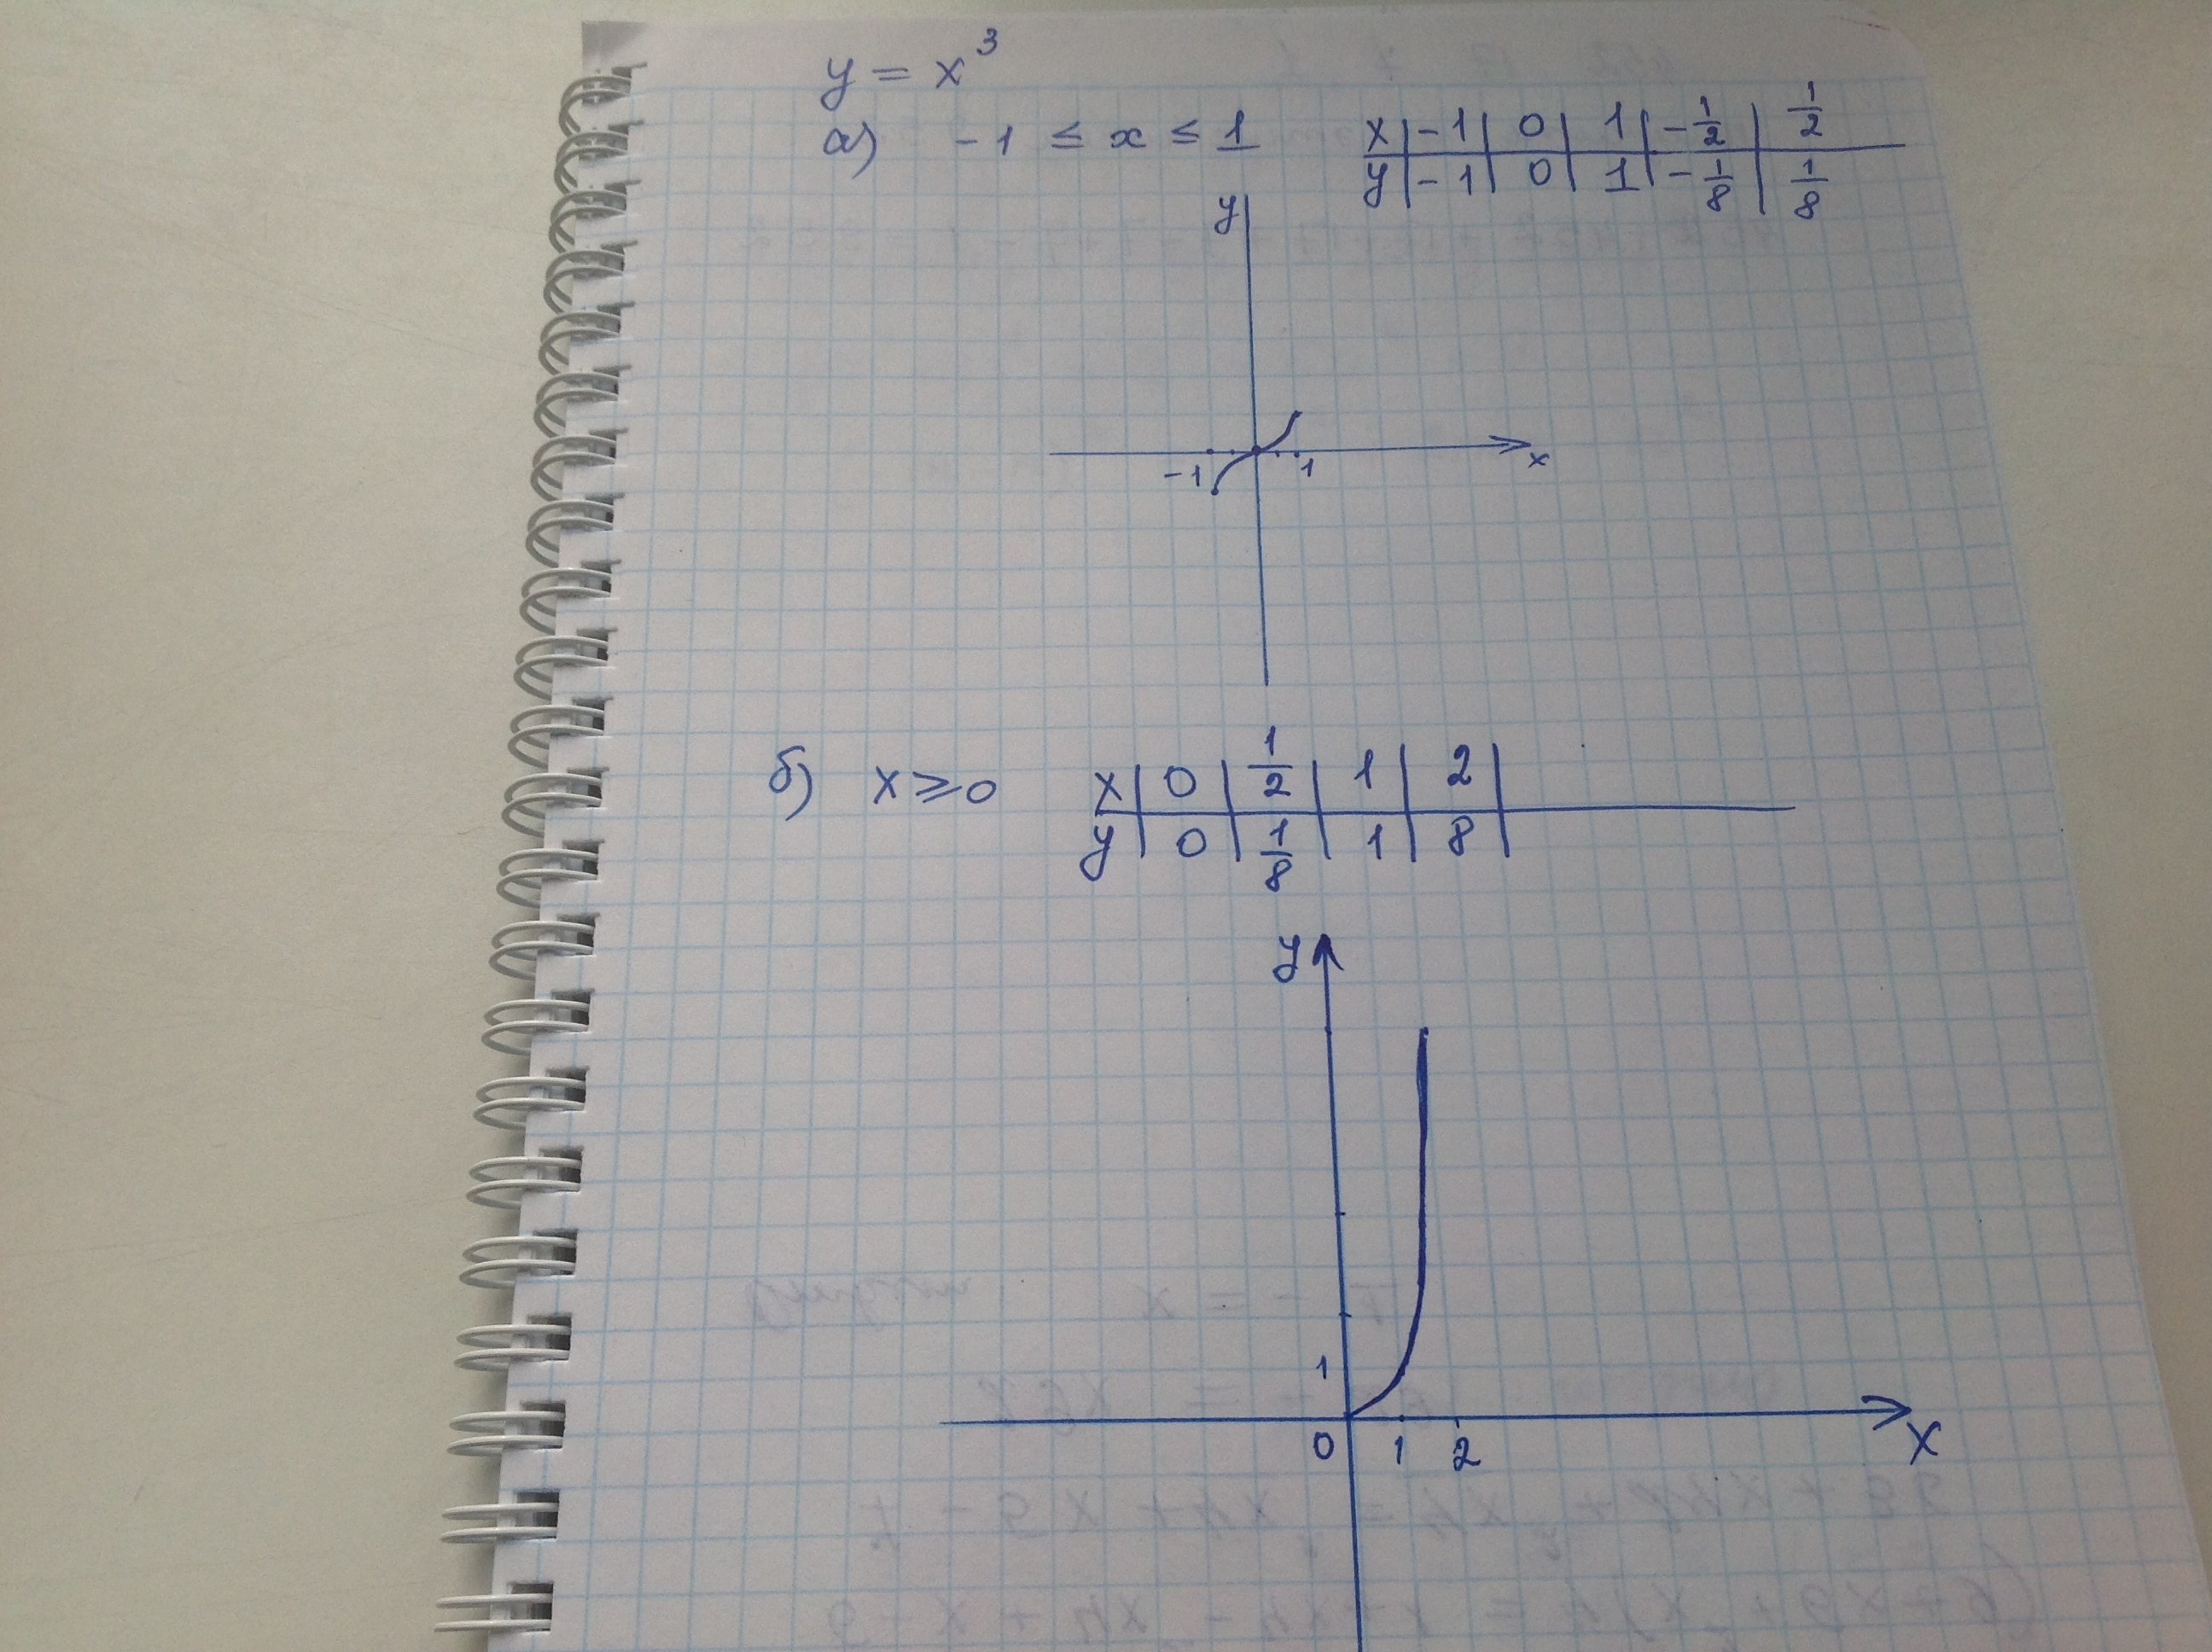 y = x³
а) -1 ≤ x ≤ 1
x | -1 | 0 | 1 | -1/2 | 1/2
y | -1 | 0 | 1 | -1/8 | 1/8
y
-1 1 x
б) x ≥ 0
x | 0 | 1/2 | 1 | 2 |
y | 0 | 1/8 | 1 | 8 |
y
1
0 1 2 x